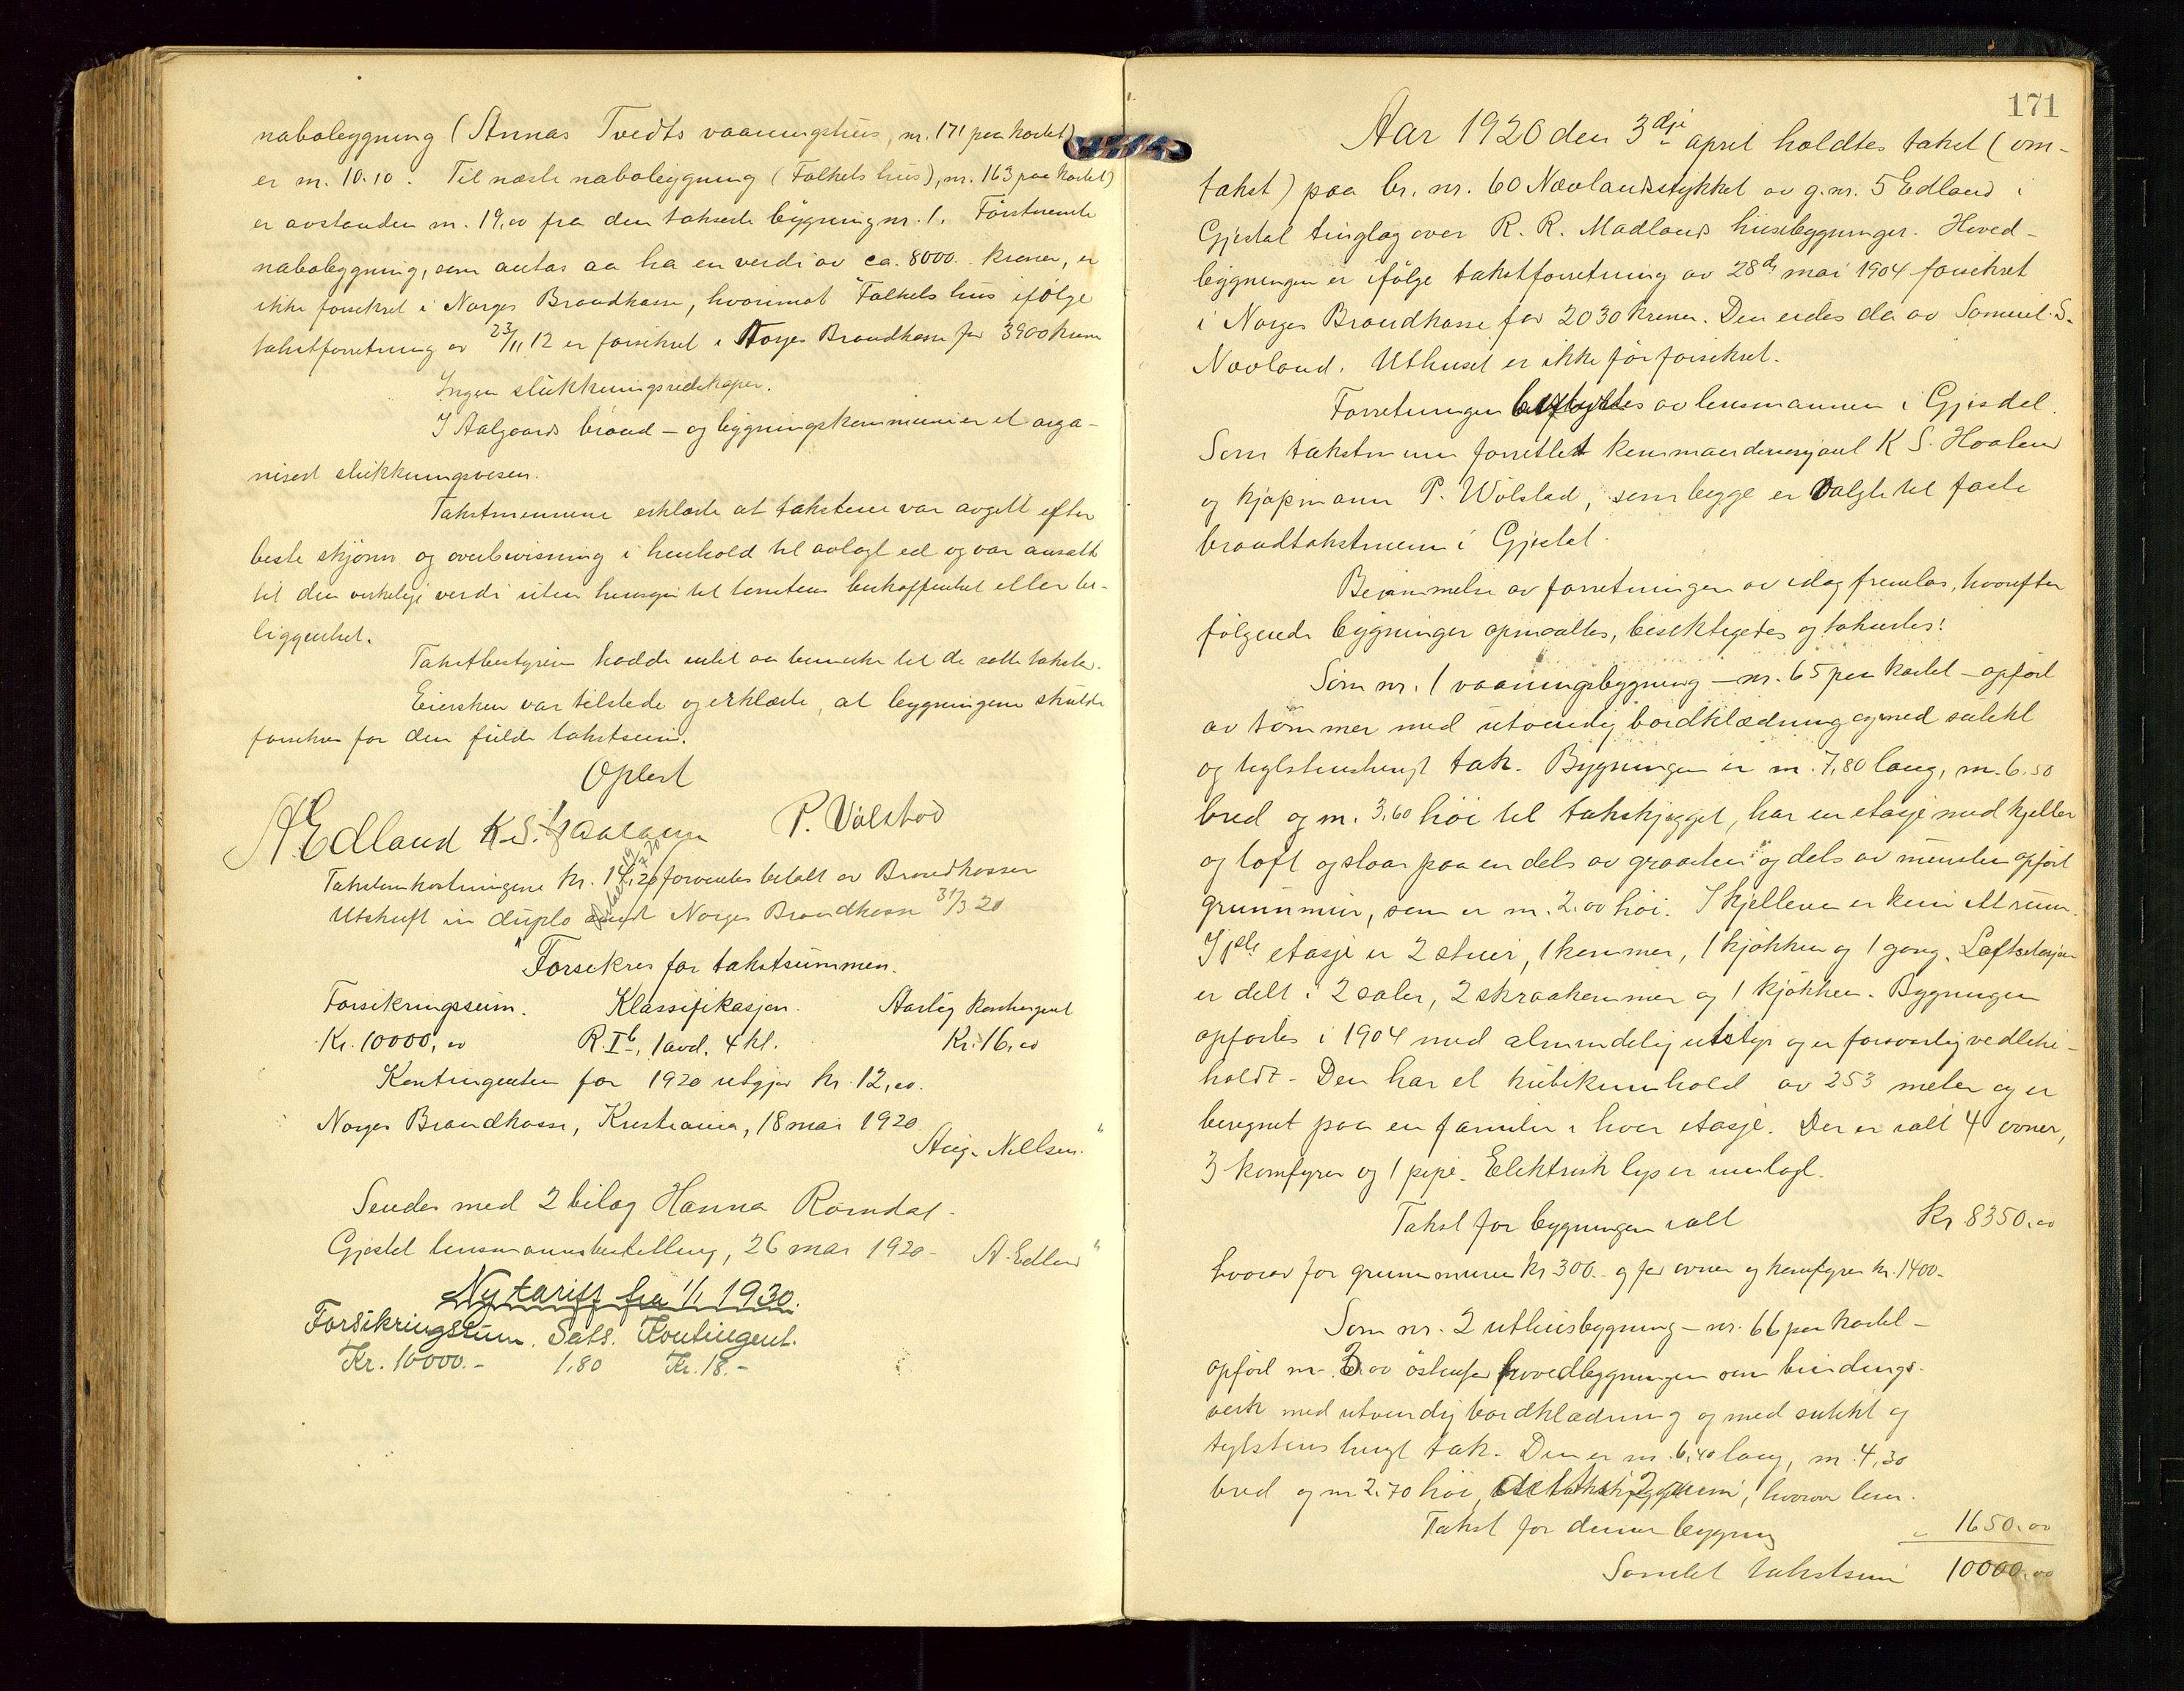 nabobygning (Annas Tvedts vaaningshus, nr. 171 paa kartet)
er m. 10.10. Til næste nabobygning (Folkets hus), nr. 163 paa kartet)
er avstanden m. 19,00 fra den takserte bygning nr. 1. Förstnevnte
nabobygning, som antas aa ha en verdi av ca. 8000.- kroner, er
ikke forsikret i Norges Brandkasse, hvorimot "Folkets hus ifølge
takstforretning av 23/11 12 er forsikret i Norges Brandkasse for 3900 kroner
Ingen slukkningsredskaper.
I Aalgaards brand- og bygningskommune er et orga-
nisert slukkningsvesen.
Takstmennene erklærte at takstene var avgitt efter
beste skjønn og overbevisning i henhold til avlagt ed og var ansatt
til den virkelige verdi uten hensyn til tomtens beskaffenhet eller be-
liggenhet.
Takstbestyreren hadde intet aa bemerke til de satte takster.
Eiersken var tilstede og erklærte, at bygningene skulde
forsikres for den fulde takstsum.
Oplest
A Edland K. S. Haaland P. Völstad
Takstomkostningene kr. 14,20 forventes betalt av Brandkassen
Utskrift in duplo sendt Norges Brandkasse 31/3 20
"Forsikres for takstsummen.
Forsikringssum. Klassifikasjon. Aarlig kontingent
Kr. 10000,00 R. Ib, 1 avd. 4 kl. Kr. 16,00
Kontingenten for 1920 utgjør kr. 12,00.
Norges Brandkasse, Kristiania, 18 mai 1920
Aug. Nilsen."
Sendes med 2 bilag Hanna Romdal.
Gjestal lensmannsbestilling, 26 mai 1920 - A. Edland"
Ny tariff fra 1/1 1930.
Forsikringssum. Sats. Kontingent.
Kr. 10000.- 1,80 Kr. 18.-
171
Aar 1920 den 3dje april holdtes takst (om-
takst) paa br. nr. 60 Nævlandsstykket av g. nr. 5 Edland i
Gjestal tinglag over R. R. Madlands husebygninger. Hoved-
bygningen er ifølge takstforretning av 28de mai 1904 forsikret
i Norges Brandkasse for 2030 kroner. Den eides da av Samuel S.
Nævland. Uthuset er ikke för forsikret.
Forretningen bestyrtes av lensmannen i Gjesdal.
Som takstmenn forrettet kommandersersjant K S. Haaland
og kjøpmann P. Wölstad, som begge er valgte til faste
brandtakstmenn i Gjestal.
Berammelse av forretningen av idag fremlas, hvorefter
følgende bygninger opmaaltes, besiktigedes og takseertes:
Som nr. 1 vaaningsbygning - nr. 65 paa kartet - opført
av tömmer med utvendig bordklædning og med sutekt
og teglstenshengt tak. Bygningen er m. 7,80 lang, m. 6.50
bred og m. 3,60 höi til takskjegget, har en etasje med kjeller
og loft og staar paa en dels av graasten og dels av mursten opført
grunnmur, som er m. 2.00 höi. I kjelleren er kun ett rum.
I 1ste etasje er 2 stuer, 1 kammer, 1 kjøkken og 1 gang. Loftsetasjen
er delt i 2 saler, 2 skraakammer og 1 kjøkken. Bygningen
opførtes i 1904 med almindelig utstyr og er forsvarlig vedlike-
holdt. Den har et kubikinnhold av 253 meter og er
beregnet paa en familie i hver etasje. Der er ialt 4 ovner,
3 komfyrer og 1 pipe. Elektrisk lys er innlagt.
Takst for bygningen ialt Kr 8350.00
hvorav for grunnmuren kr 300.- og for ovner og komfyrer kr. 1400.-
Som nr. 2 uthusbygning - nr. 66 paa kartet -
opført m. 3.00 østenfor hovedbygningen som bindings-
verk med utvendig bordklædning og med sutekt og
teglstenshengt tak. Den er m. 6,40 lang, m. 4,30
bred og m 2.70 höi, delt i 2 rum, hvorav
Takst for denne bygning " 1650.00
Samlet takstsum 10000.00